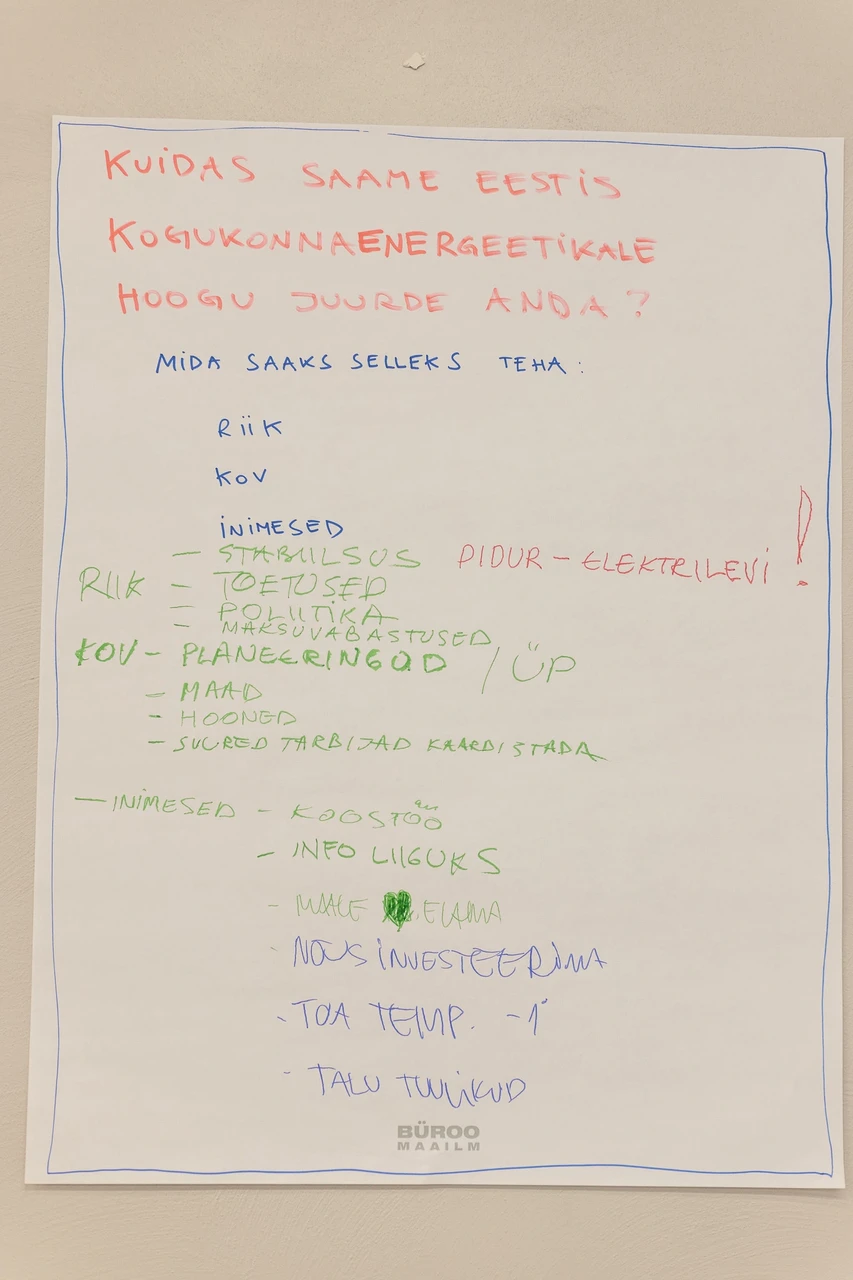 KUIDAS SAAME EESTIS
KOGUKONNAENERGEETIKALE
HOOGU JUURDE ANDA?
MIDA SAAKS SELLEKS TEHA:
RIIK
KOV
INIMESED
– STABIILSUS PIDUR – ELEKTRILEVI !
RIIK – TOETUSED
– POLIITIKA
– MAKSUVABASTUSED
KOV – PLANEERINGUD / ÜP
– MAAD
– HOONED
– SUURED TARBIJAD KAARDISTADA
– INIMESED – KOOSTÖÖ
– INFO LIIGUKS
- MAALE ELAMA
- NÕUS INVESTEERIMA
- TOA TEMP. -1°
- TALU TUULIKUD
BÜROO
MAAILM